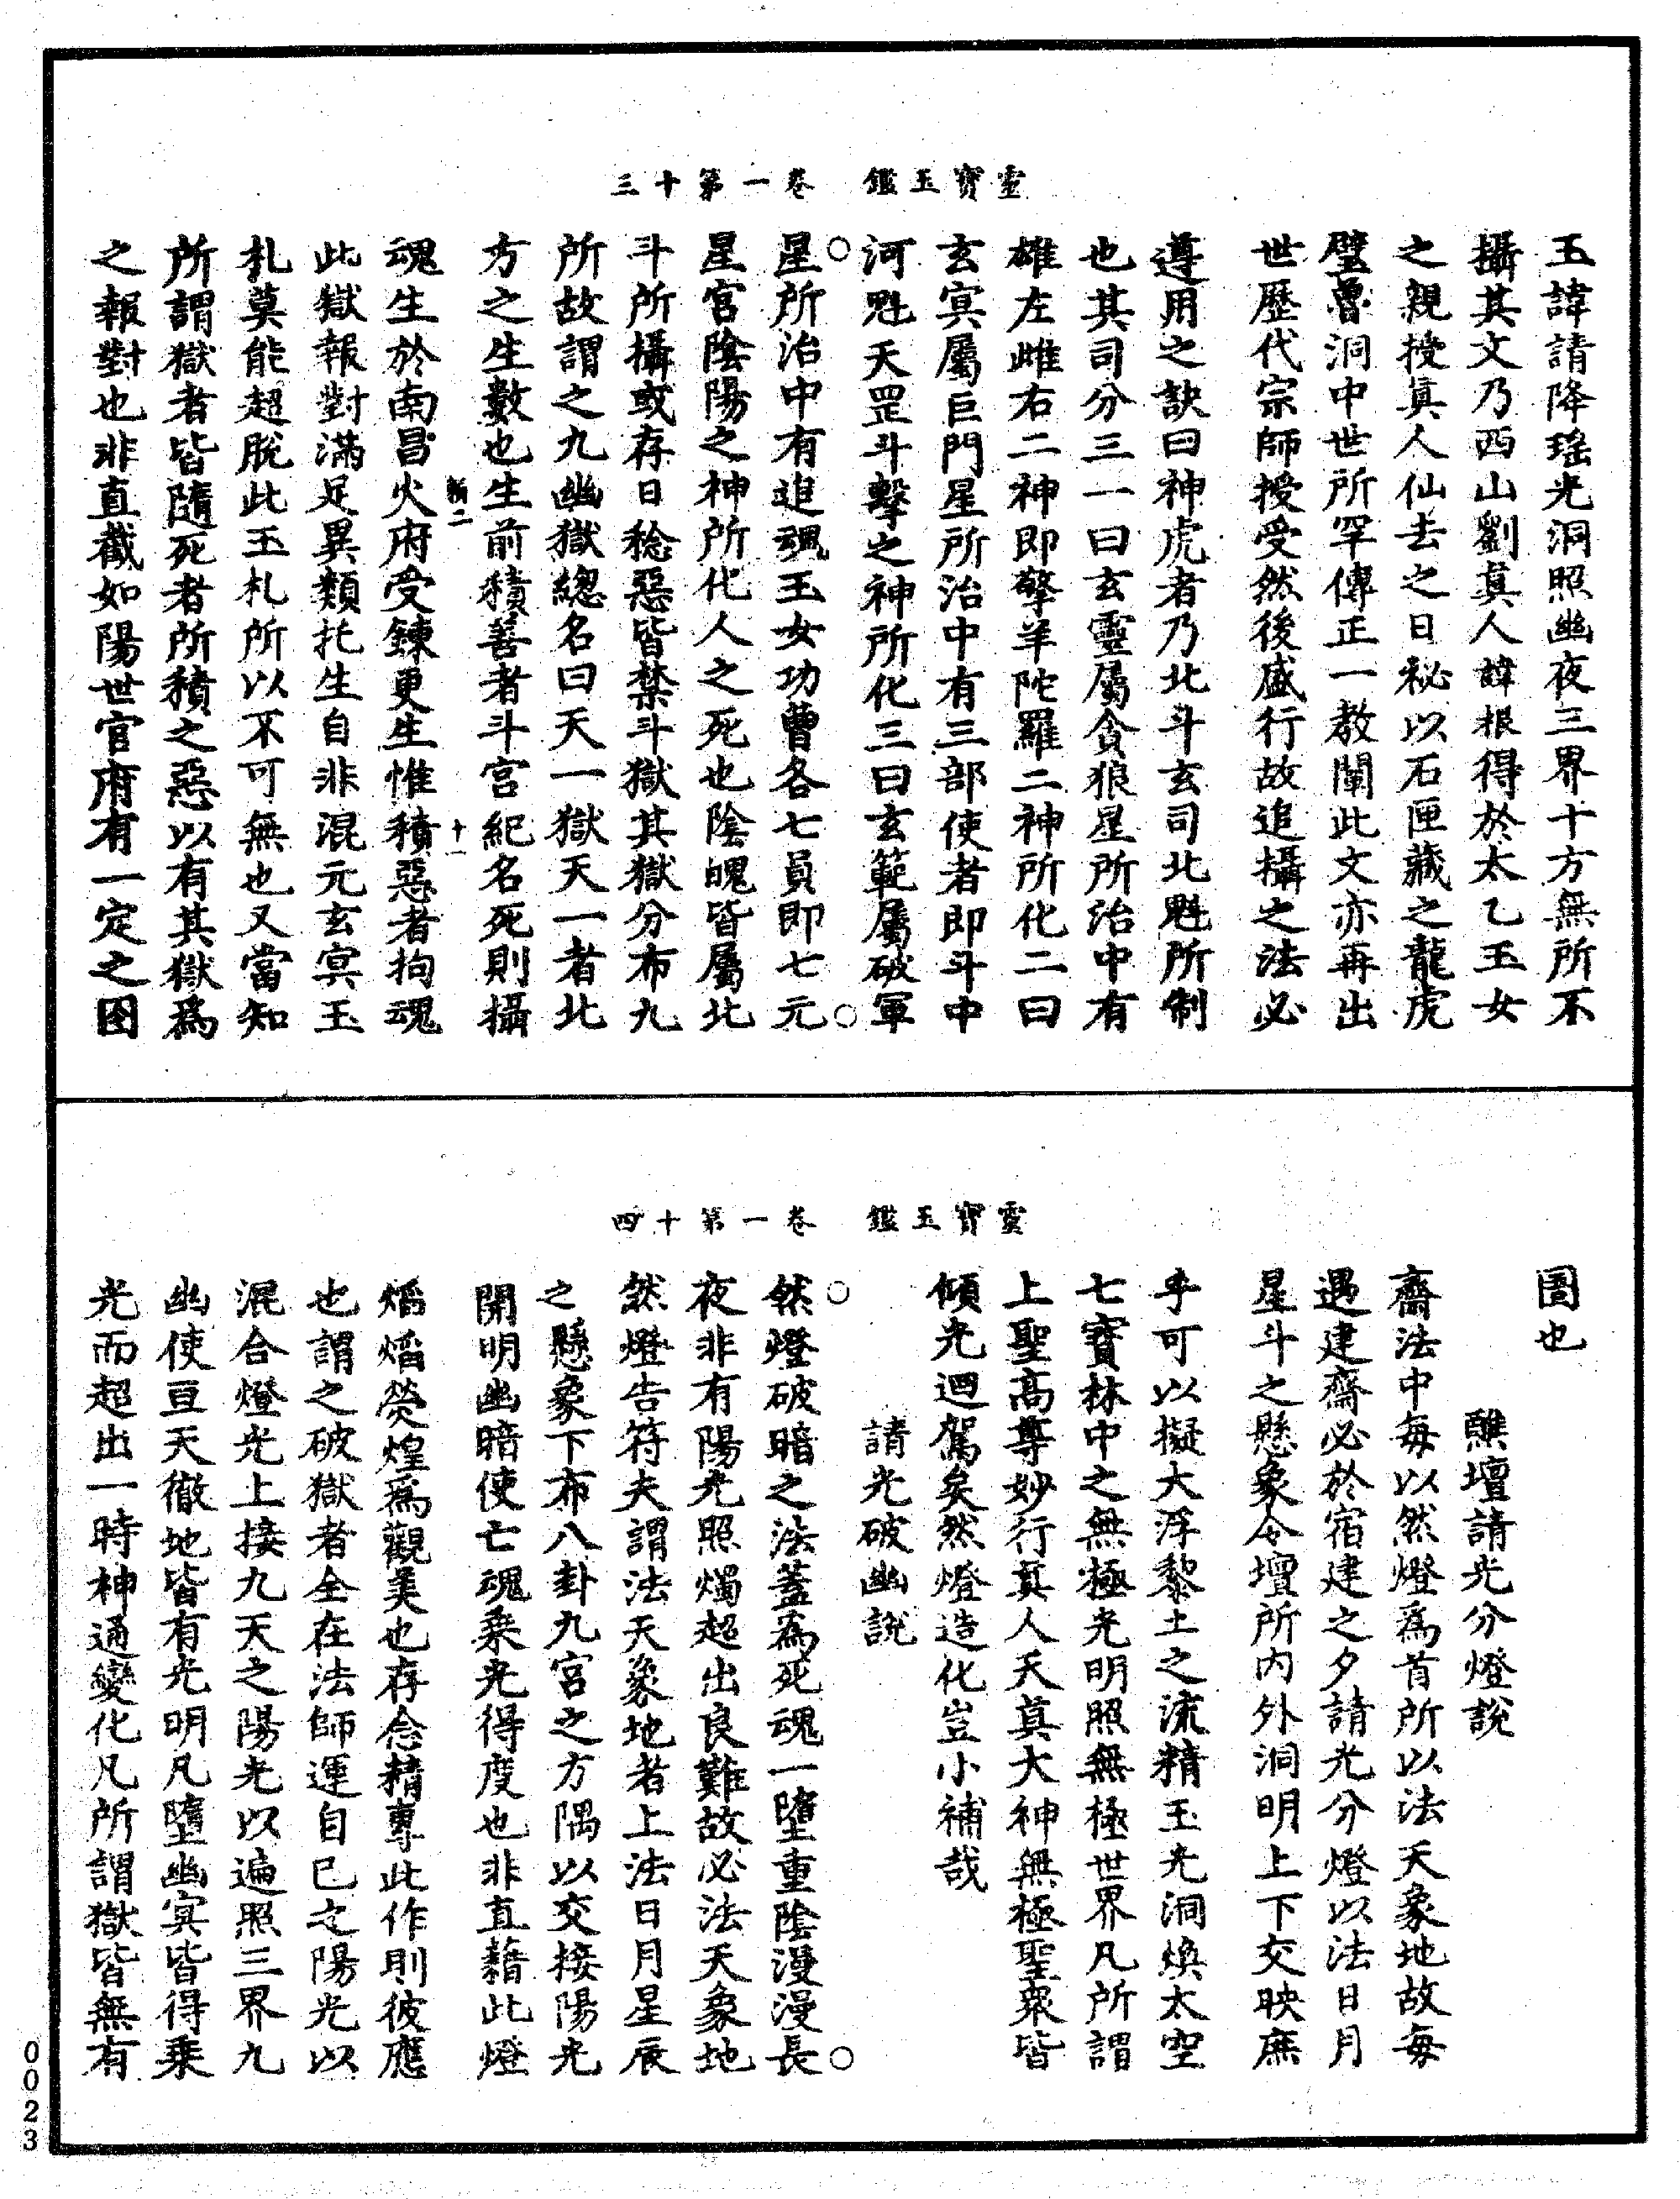 靈寶玉鑑　卷一第十三
玉諱請降瑤光洞照幽夜三界十方無所不
攝其文乃西山劉真人諱根得於太乙玉女
之親授真人仙去之日祕以石匣藏之龍虎
璧魯洞中世所罕傳正一教闡此文亦再出
世歷代宗師授受然後盛行故追攝之法必
遵用之訣曰神虎者乃北斗玄司北魁所制
也其司分三一曰玄靈屬貪狼星所治中有
雄左雌右二神即擎羊陀羅二神所化二曰
玄冥屬巨門星所治中有三部使者即斗中
河魁天罡斗擊之神所化三曰玄範屬破軍
星所治中有追魂玉女功曹各七員即七元
星官陰陽之神所化人之死也陰魄皆屬北
斗所攝或存日稔惡皆禁斗獄其獄分布九
所故謂之九幽獄總名曰天一獄天一者北
方之生數也生前積善者斗宮紀名死則攝
二　十一
魂生於南昌火府受鍊更生惟積惡者拘魂
此獄報對滿足異類托生自非混元玄冥玉
札莫能超脫此玉札所以不可無也又當知
所謂獄者皆隨死者所積之惡以有其獄為
之報對也非直截如陽世官府有一定之囹
靈寶玉鑑　卷一第十四
圄也
醮壇請光分燈說
齋法中每以然燈為首所以法天象地故每
遇建齋必於宿建之夕請光分燈以法日月
星斗之懸象令壇所內外洞明上下交映庶
乎可以擬大浮黎土之流精玉光洞煥太空
七寶林中之無極光明照無極世界凡所謂
上聖高尊妙行真人天真大神無極聖眾皆
傾光迴駕矣然燈造化豈小補哉
請光破幽說
然燈破暗之法蓋為死魂一墮重陰漫漫長
夜非有陽光照燭超出良難故必法天象地
然燈告符夫謂法天象地者上法日月星辰
之懸象下布八卦九宮之方隅以交接陽光
開明幽暗使亡魂乘光得度也非直藉此燈
熖熖熒煌為觀美也存念精專此作則彼應
也謂之破獄者全在法師運自已之陽光以
混合燈光上接九天之陽光以遍照三界九
幽使亘天徹地皆有光明凡墮幽冥皆得乘
光而超出一時神通變化凡所謂獄皆無有
0023